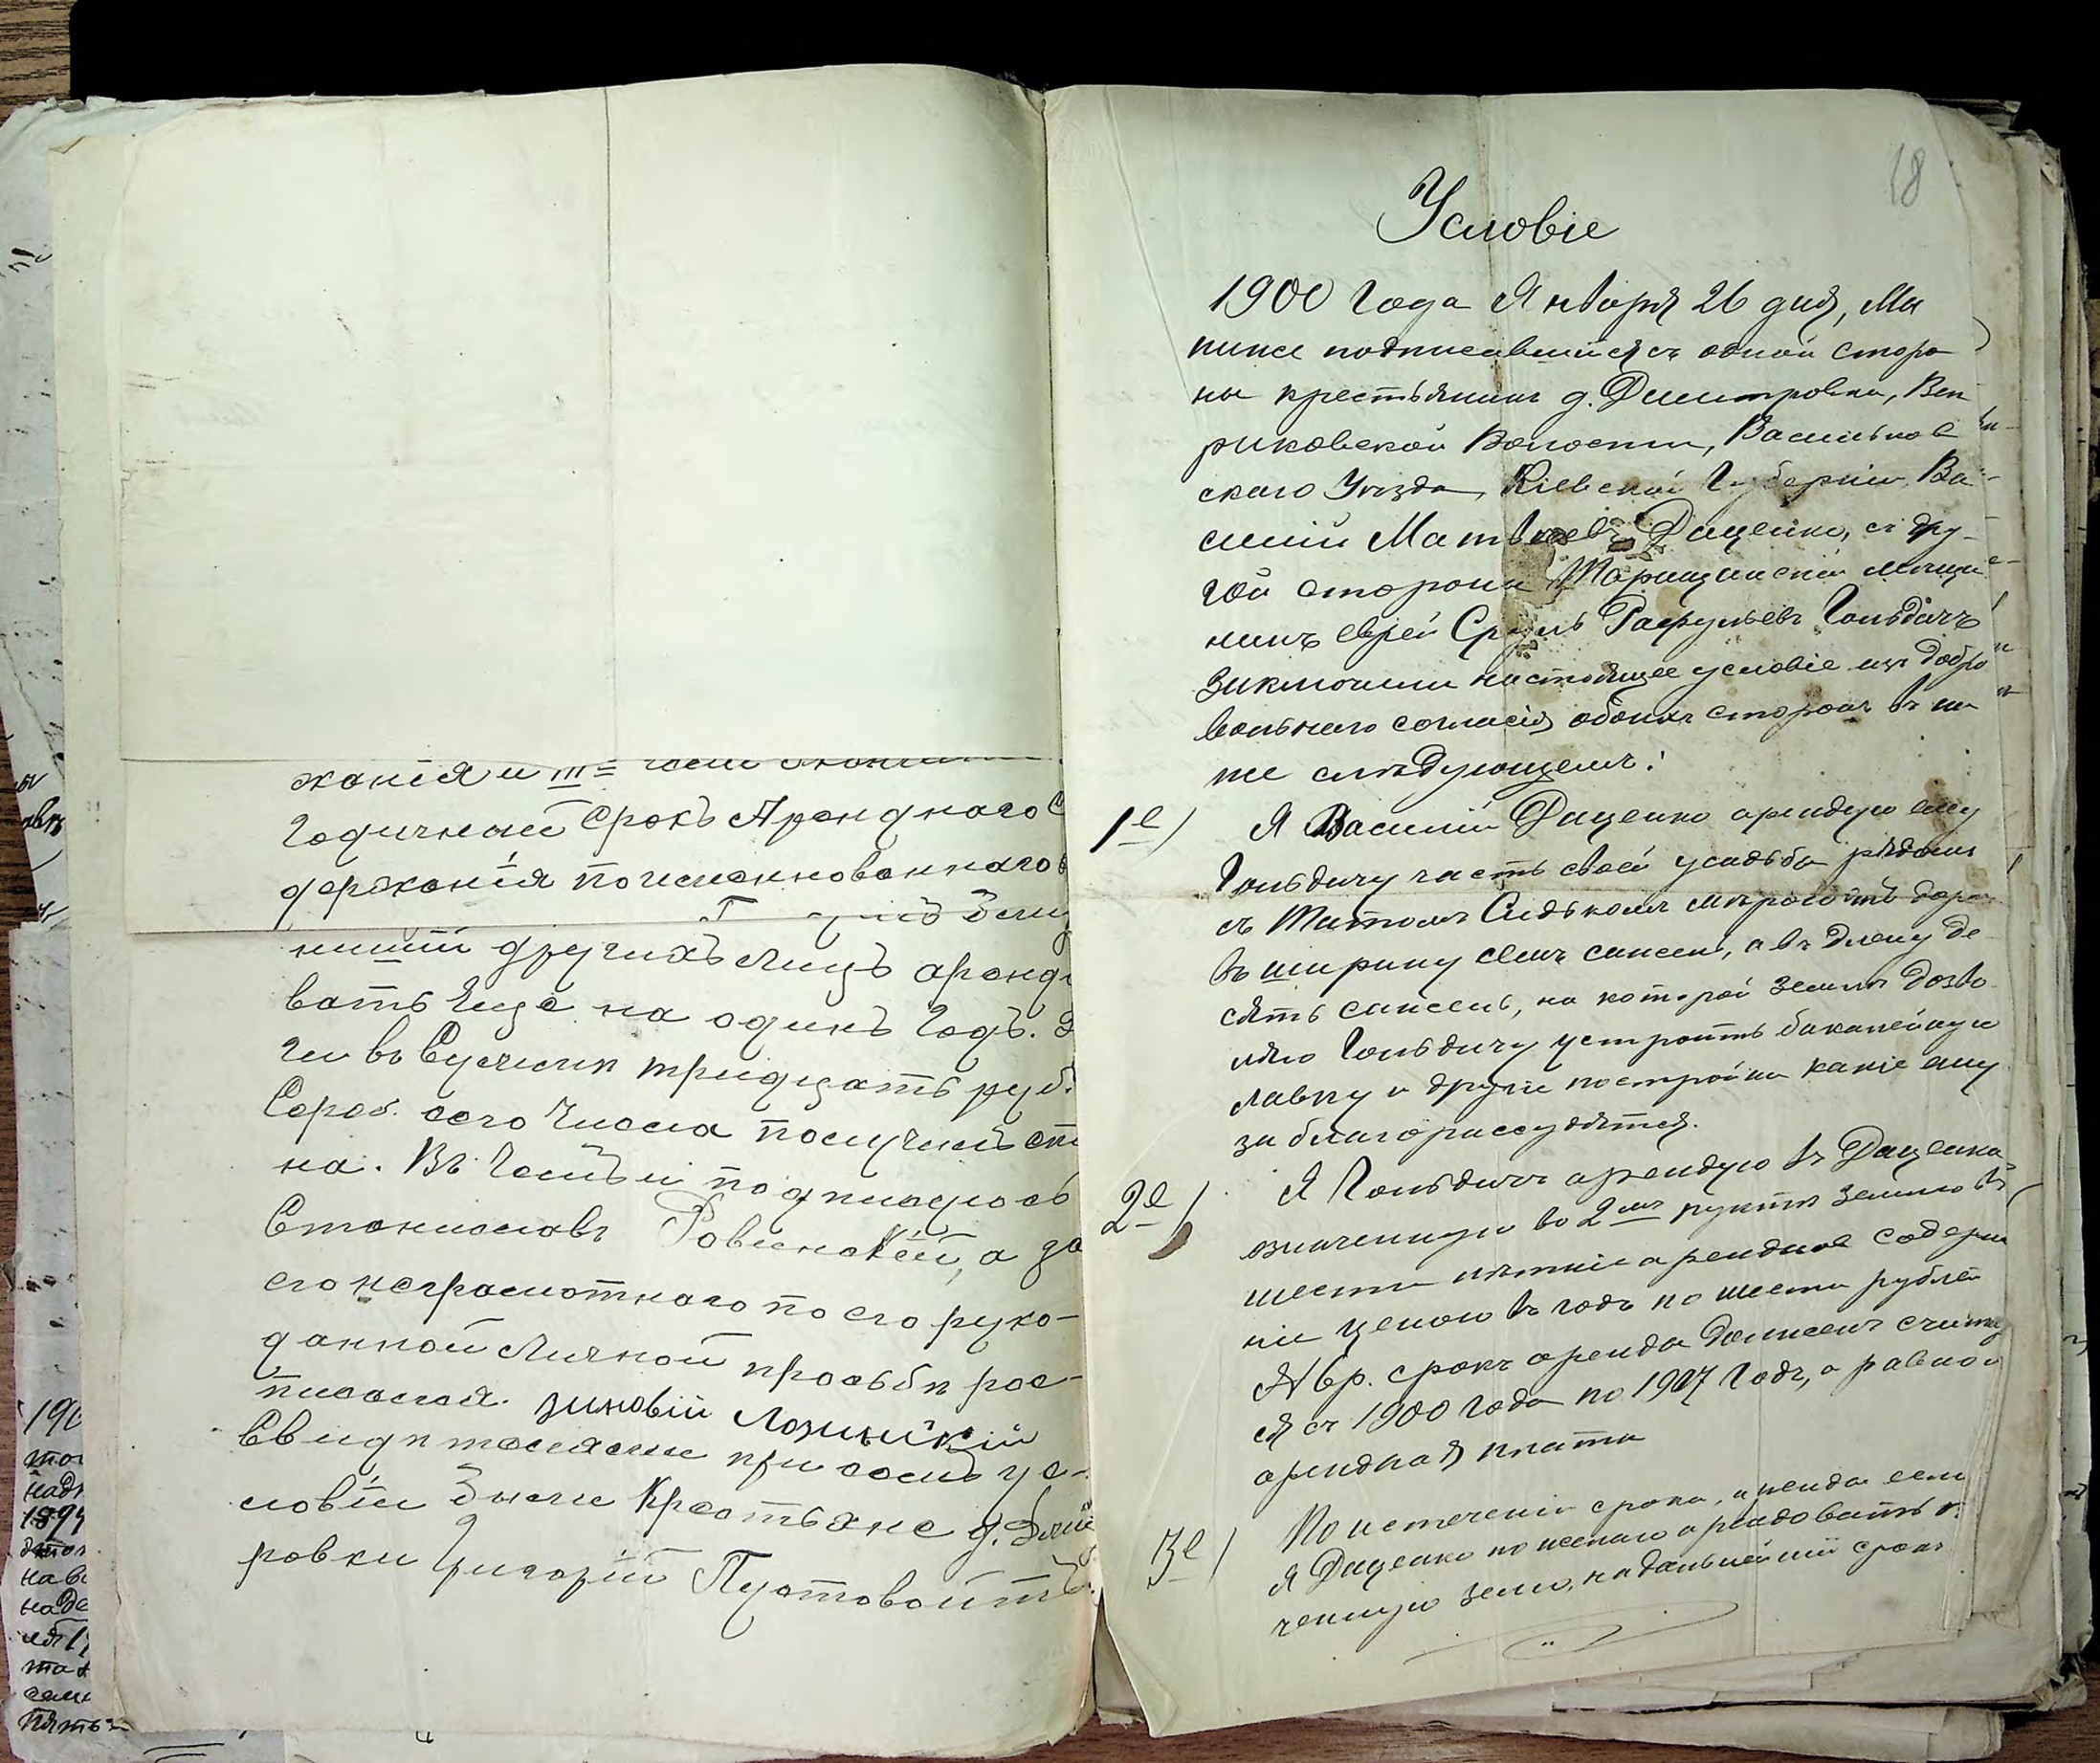 жанія и III=
Годичный Срокъ Аренднаго С
держанія поименнованнаго в
Зем
ншій другихъ лицъ аренд
вать Еще на одинъ Годъ. З
ги въ Суммѣ тридцать руб.
Сереб. сего Числа получилъ спо
на. Въ Чемъ и подписуюсь
Станиславъ Ровинскій, а за
его неграмотнаго по его руко-
данной Личной просьбѣ рос-
писался. Зиновій Лозинскій
Свидѣтелями при семъ ус-
ловіи Были Крестьяне д. Дми
ровки Григорій Пустовойтъ
18
Условіе
1900 Года Января 26 дня, Мы
ниже подписавшийся съ одной сторо
ны крестьянинъ д. Димитровки, Вин
риковской Волости, Васильков
скаго Уѣзда, Кіевской Губерніи Ва-
силій Матвѣевъ Даценко, съ дру-
гой стороны Таращанскій мѣща
нинъ еврей Сруль Рафульевъ Гольдичъ
заключили настоящее условіе изъ добро
вольнаго согласія обоихъ сторонъ въ ни
же слѣдующемъ:
1е) Я Василій Даценко арендую ему
Гольдичу часть своей усадьбы рядомъ
съ Титомъ Сидькомъ мѣрою отъ доро
въ ширину семъ сажень, а въ длену де
сять сажень, на которой земли дозво
ляю Гольдичу устроить бакалейную
лавку и други постройки какіе ему
за благоразсудятся.
2е) Я Гольдичъ арендую въ Даценка
означенную во 2мъ пунктѣ землю въ
шести лѣтніе арендное содержа
ніе ценою въ годъ по шести рублей
Явр. срокъ аренда должень счита
ся съ 1900 Года по 1907 Годъ, а равно и
арендная плата
3е) По истеченіи срока, аренда если
я Даценко пожелаю арендовать о.
ченную землю, на дальнейшій срокъ
190
1899